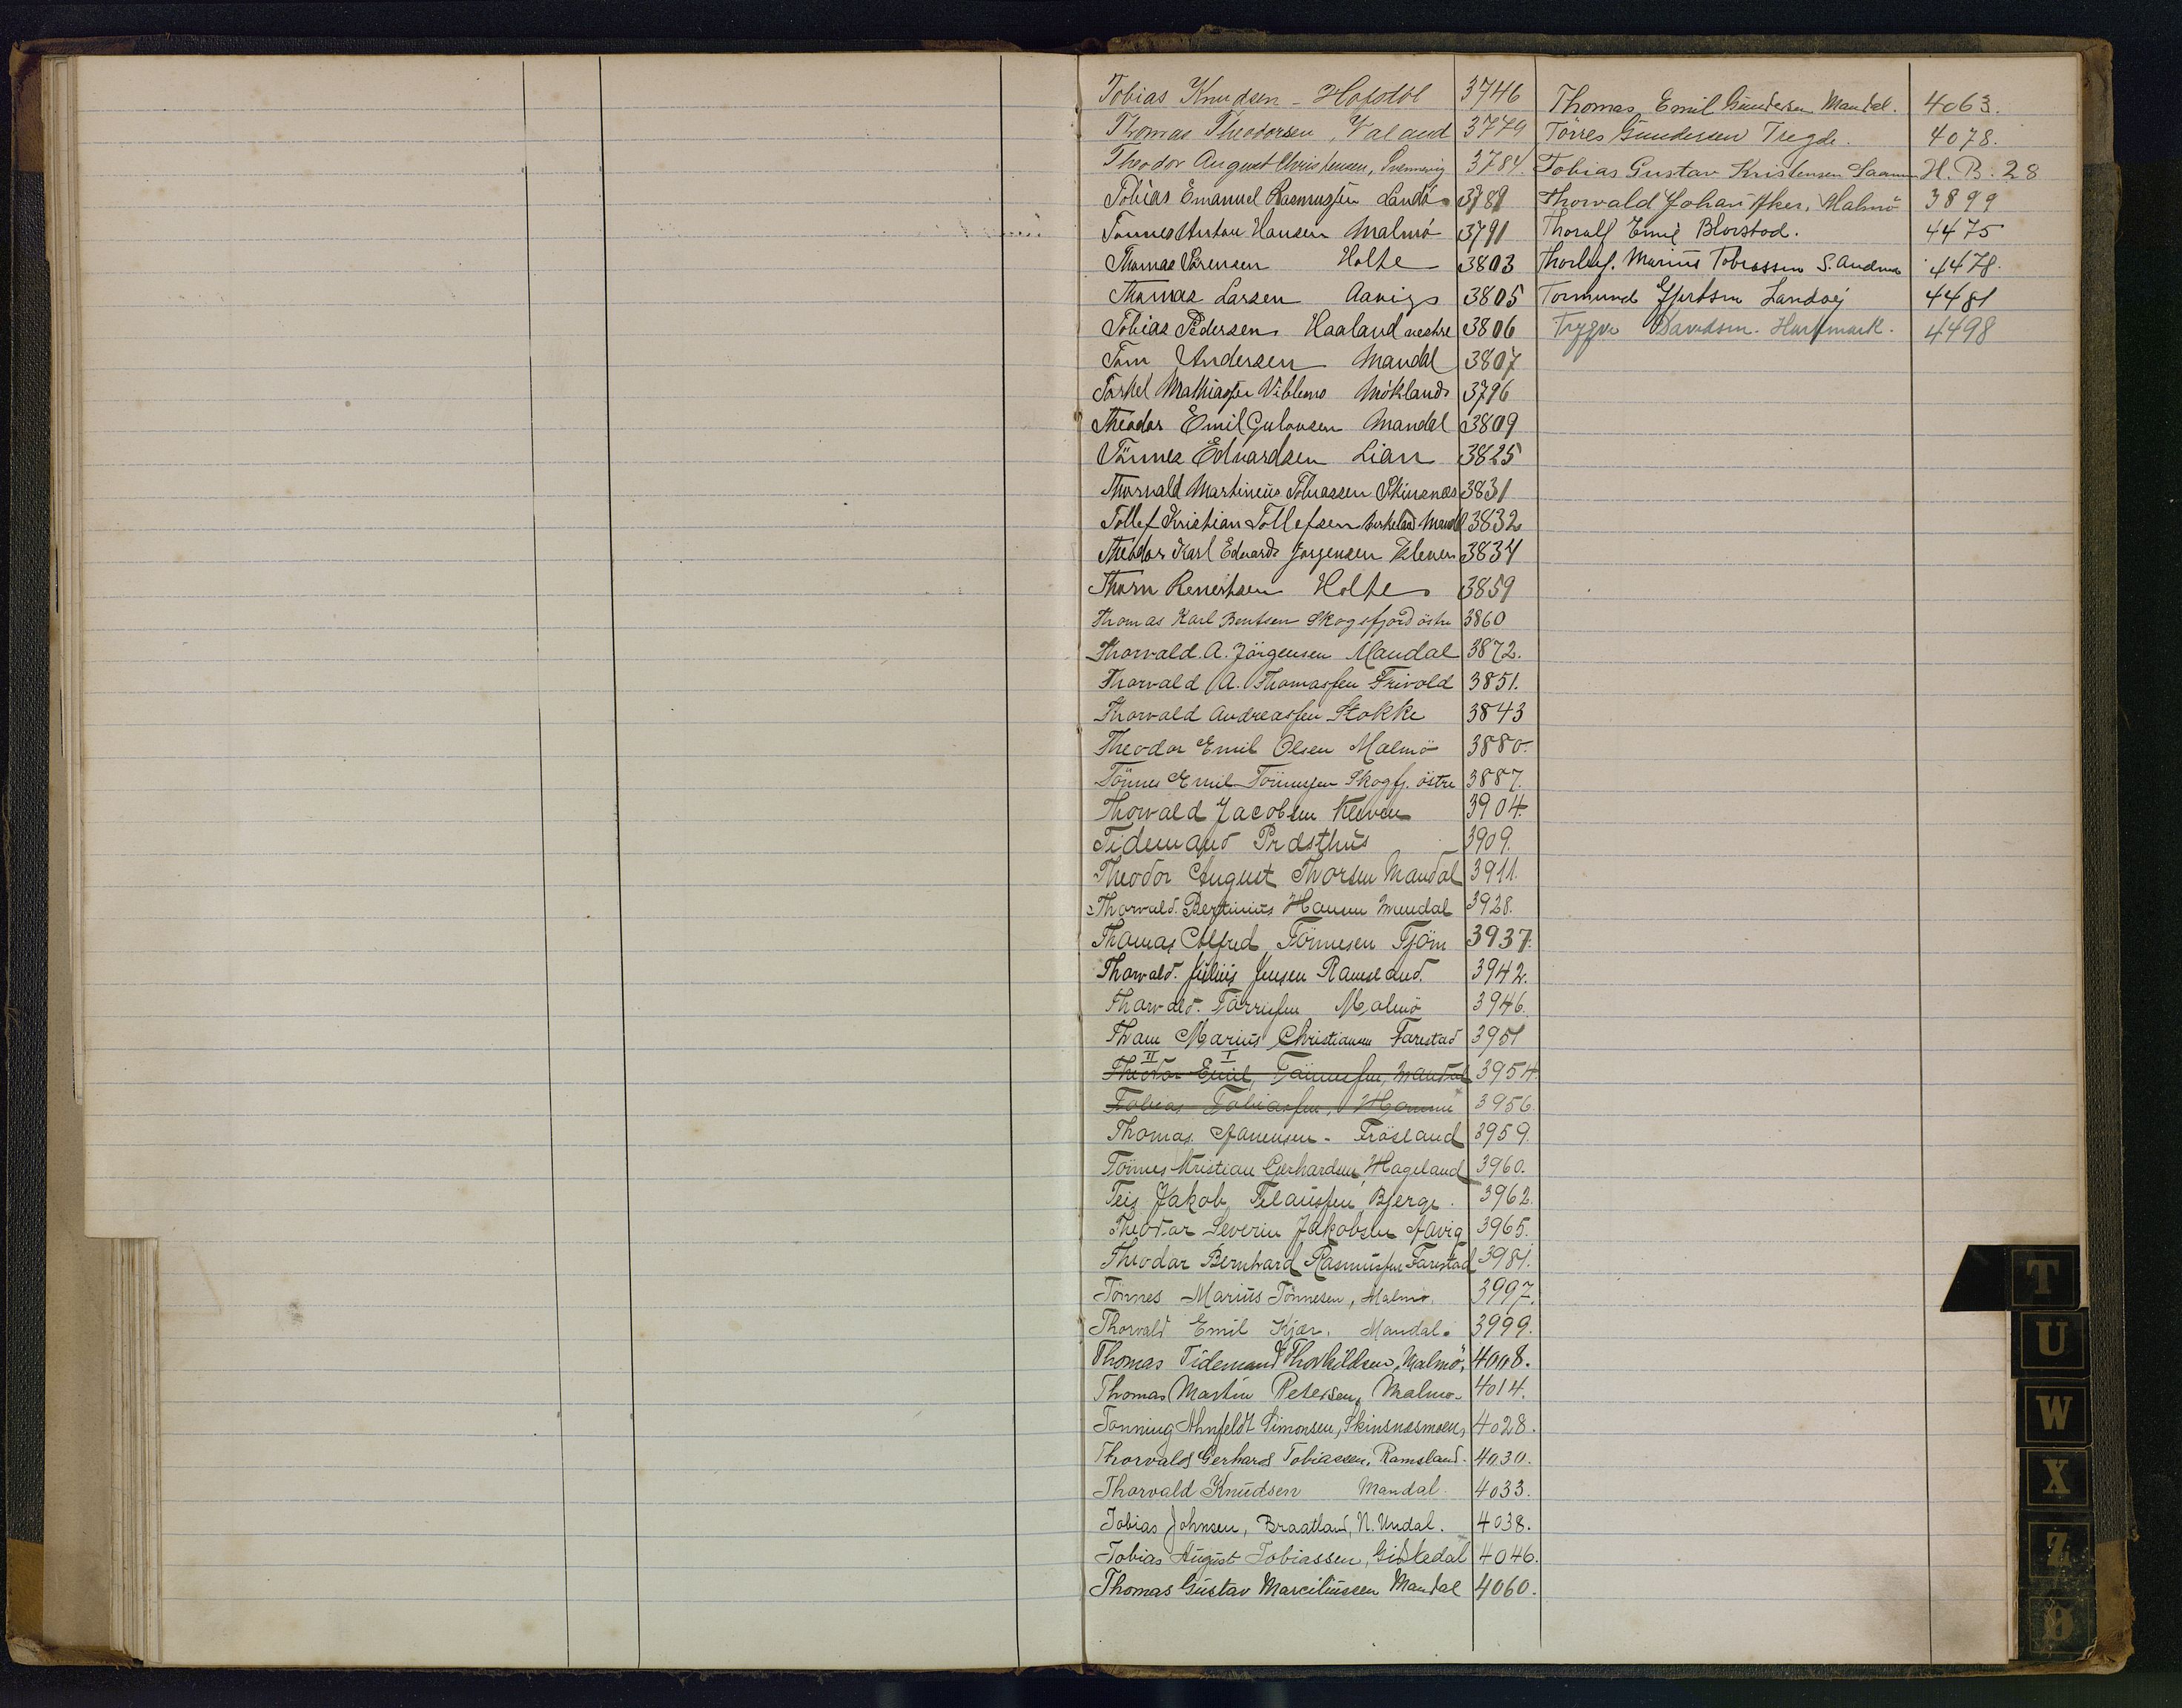 Tobias Knudsen - Hofstöl 3746
Thomas Theodorsen, Valand 3779
Theodor August Christensen, Svennevig 3784.
Tobias Emanuel Rasmussen Landö 3789
Tönnes Anton Hansen Malmö 3791
Thomas Sörensen Holte 3803
Thomas Larsen Aavigs 3805
Tobias Pedersen Haaland vestre 3806
Tom Andersen Mandal 3807
Torkel Mathiassen Vibbemo Möklands 3796
Theodor Emil Gulovsen Mandal 3809
Tönnes Edvardsen Lian 3825
Thorvald Martinius Tobiassen Skinsnes 3831
Tollef Kristian Tollefsen Birkeland Mandal 3832
Theodor Karl Edvard Jörgensen Kleven 3834
Thorn Reiertsen Holte 3859
Thomas Karl Bentsen Skogsfjord östre 3860
Thorvald. A. Jörgensen Mandal 3872.
Thorvald A. Thomassen Frivold 3851.
Thorvald Andreassen Stokke 3843
Theodor Emil Olsen Malmö 3880.
Tönnes Emil Tönnessen Skogfj. östre 3887.
Thorvald Jacobsen Kleven 3904.
Tidemand Prästhus 3909.
Theodor August Thorsen Mandal 3911.
Thorvald. Bertinius Hansen Mandal 3928.
Thomas Alfred Tönnesen Tjöm 3937.
Thorvald. Julius Jensen Ramsland. 3942.
Thorvald. Törrissen Malmö 3946.
Thom Marius Christiansen Farestad 3951
II I
Theodor Emil, Tönnessen, Mandal 3954.
Tobias Tobiassen, Homme 3956.
Thomas Aanensen - Fröisland 3959.
Tönnes Kristian Gerhardsen, Hageland 3960.
Teis Jakob Telaussen Bjerge. 3962.
Theodor Severin Jakobsen Aavig 3965.
Theodor Bernhard Rasmussen Farestad 3981.
Tönnes Marius Tönnesen, Malmö. 3997.
Thorvald Emil Kjær. Mandal. 3999.
Thomas Tidemand Thorkildsen, Malmö. 4008.
Thomas Martin Petersen, Malmö 4014.
Tönning Ahnfeldt Simonsen, Skinsnesmoen, 4028.
Thorvald Gerhard Tobiassen, Ramsland. 4030.
Thorvald Knudsen Mandal 4033.
Tobias Johnsen, Braatland, N. Undal. 4038.
Tobias August Tobiassen, Gisledal 4046.
Thomas Gustav Marciliussen Mandal 4060.
Thomas Emil Gundersen Mandal. 4063.
Törres Gundersen Tregde. 4078.
Tobias Gustav Kristensen H. B. 28
Thorvald Johan Aker, Malmö 3899
Thoralf Emil Blorstad. 4475
Thorleif. Marius Tobiassen S. Audnes 4478.
Tormund Gjertsen Landöy 4481
Trygve Davidsen. Hartmark. 4498
T
U
W
X
Z
Ø